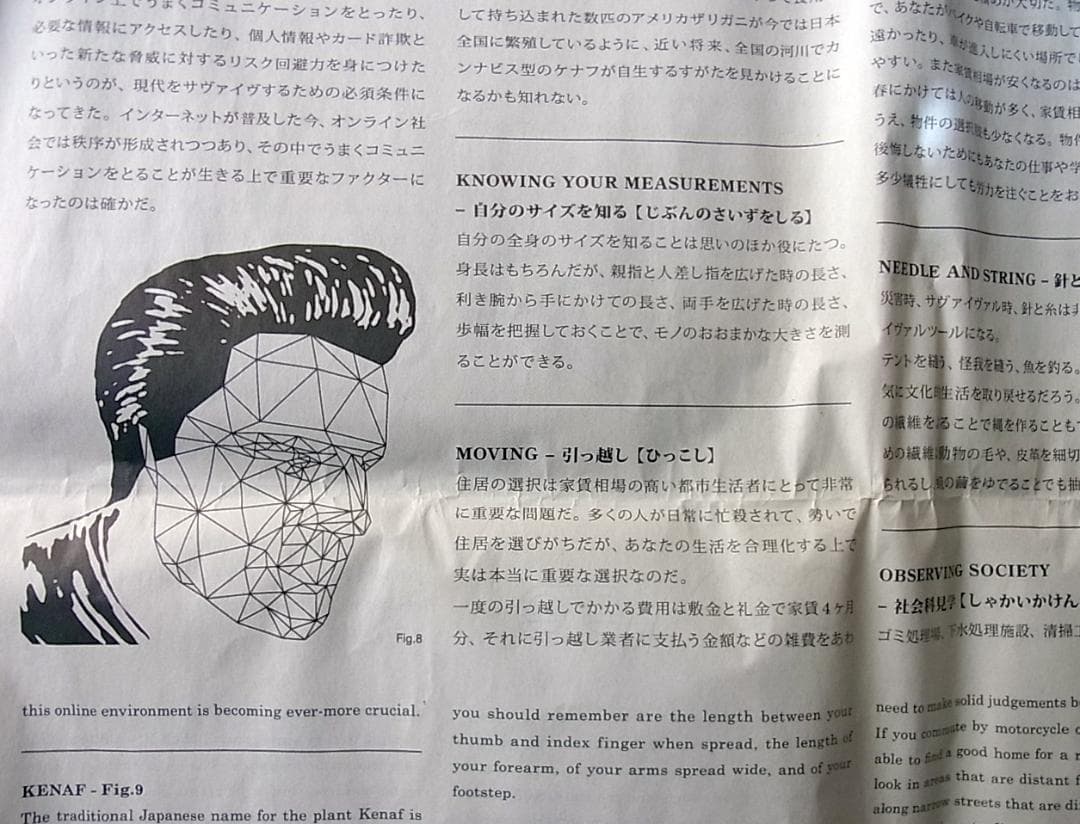 オンライン上でうまくコミュニケーションをとったり、
必要な情報にアクセスしたり、個人情報やカード詐欺と
いった新たな脅威に対するリスク回避力を身につけた
りというのが、現代をサヴァイヴするための必須条件に
なってきた。インターネットが普及した今、オンライン社
会では秩序が形成されつつあり、その中でうまくコミュニ
ケーションをとることが生きる上で重要なファクターに
なったのは確かだ。
Fig.8
this online environment is becoming ever-more crucial.
KENAF – Fig.9
The traditional Japanese name for the plant Kenaf is
して持ち込まれた数匹のアメリカザリガニが今では日本
全国に繁殖しているように、近い将来、全国の河川でカ
ンナビス型のケナフが自生するすがたを見かけることに
なるかも知れない。
KNOWING YOUR MEASUREMENTS
– 自分のサイズを知る【じぶんのさいずをしる】
自分の全身のサイズを知ることは思いのほか役にたつ。
身長はもちろんだが、親指と人差し指を広げた時の長さ、
利き腕から手にかけての長さ、両手を広げた時の長さ、
歩幅を把握しておくことで、モノのおおまかな大きさを測
ることができる。
MOVING – 引っ越し【ひっこし】
住居の選択は家賃相場の高い都市生活者にとって非常
に重要な問題だ。多くの人が日常に忙殺されて、勢いで
住居を選びがちだが、あなたの生活を合理化する上で
実は本当に重要な選択なのだ。
一度の引っ越しでかかる費用は敷金と礼金で家賃4ヶ月
分、それに引っ越し業者に支払う金額などの雑費をあわ
you should remember are the length between your
thumb and index finger when spread, the length of
your forearm, of your arms spread wide, and of your
footstep.
で、あなたがバイクや自転車で移動して
遠かったり、車が進入しにくい場所で
やすい。また家賃相場が安くなるのは
春にかけては人の移動が多く、家賃相
うえ、物件の選択肢も少なくなる。物件
後悔しないためにもあなたの仕事や学
多少犠牲にしても労力を注ぐことをお
NEEDLE AND STRING – 針と
災害時、サヴァイヴァル時、針と糸は非
イヴァルツールになる。
テントを縫う、怪我を縫う、魚を釣る。
気に文化的生活を取り戻せるだろう。
の繊維をよることで縄を作ることも
めの繊維、動物の毛や、皮革を細切
られるし、蚕の繭をゆでることでも抽
OBSERVING SOCIETY
– 社会科見学【しゃかいかけん
ゴミ処理場、下水処理施設、清掃工
need to make solid judgements b
If you commute by motorcycle o
able to find a good home for a r
look in areas that are distant f
along narrow streets that are di